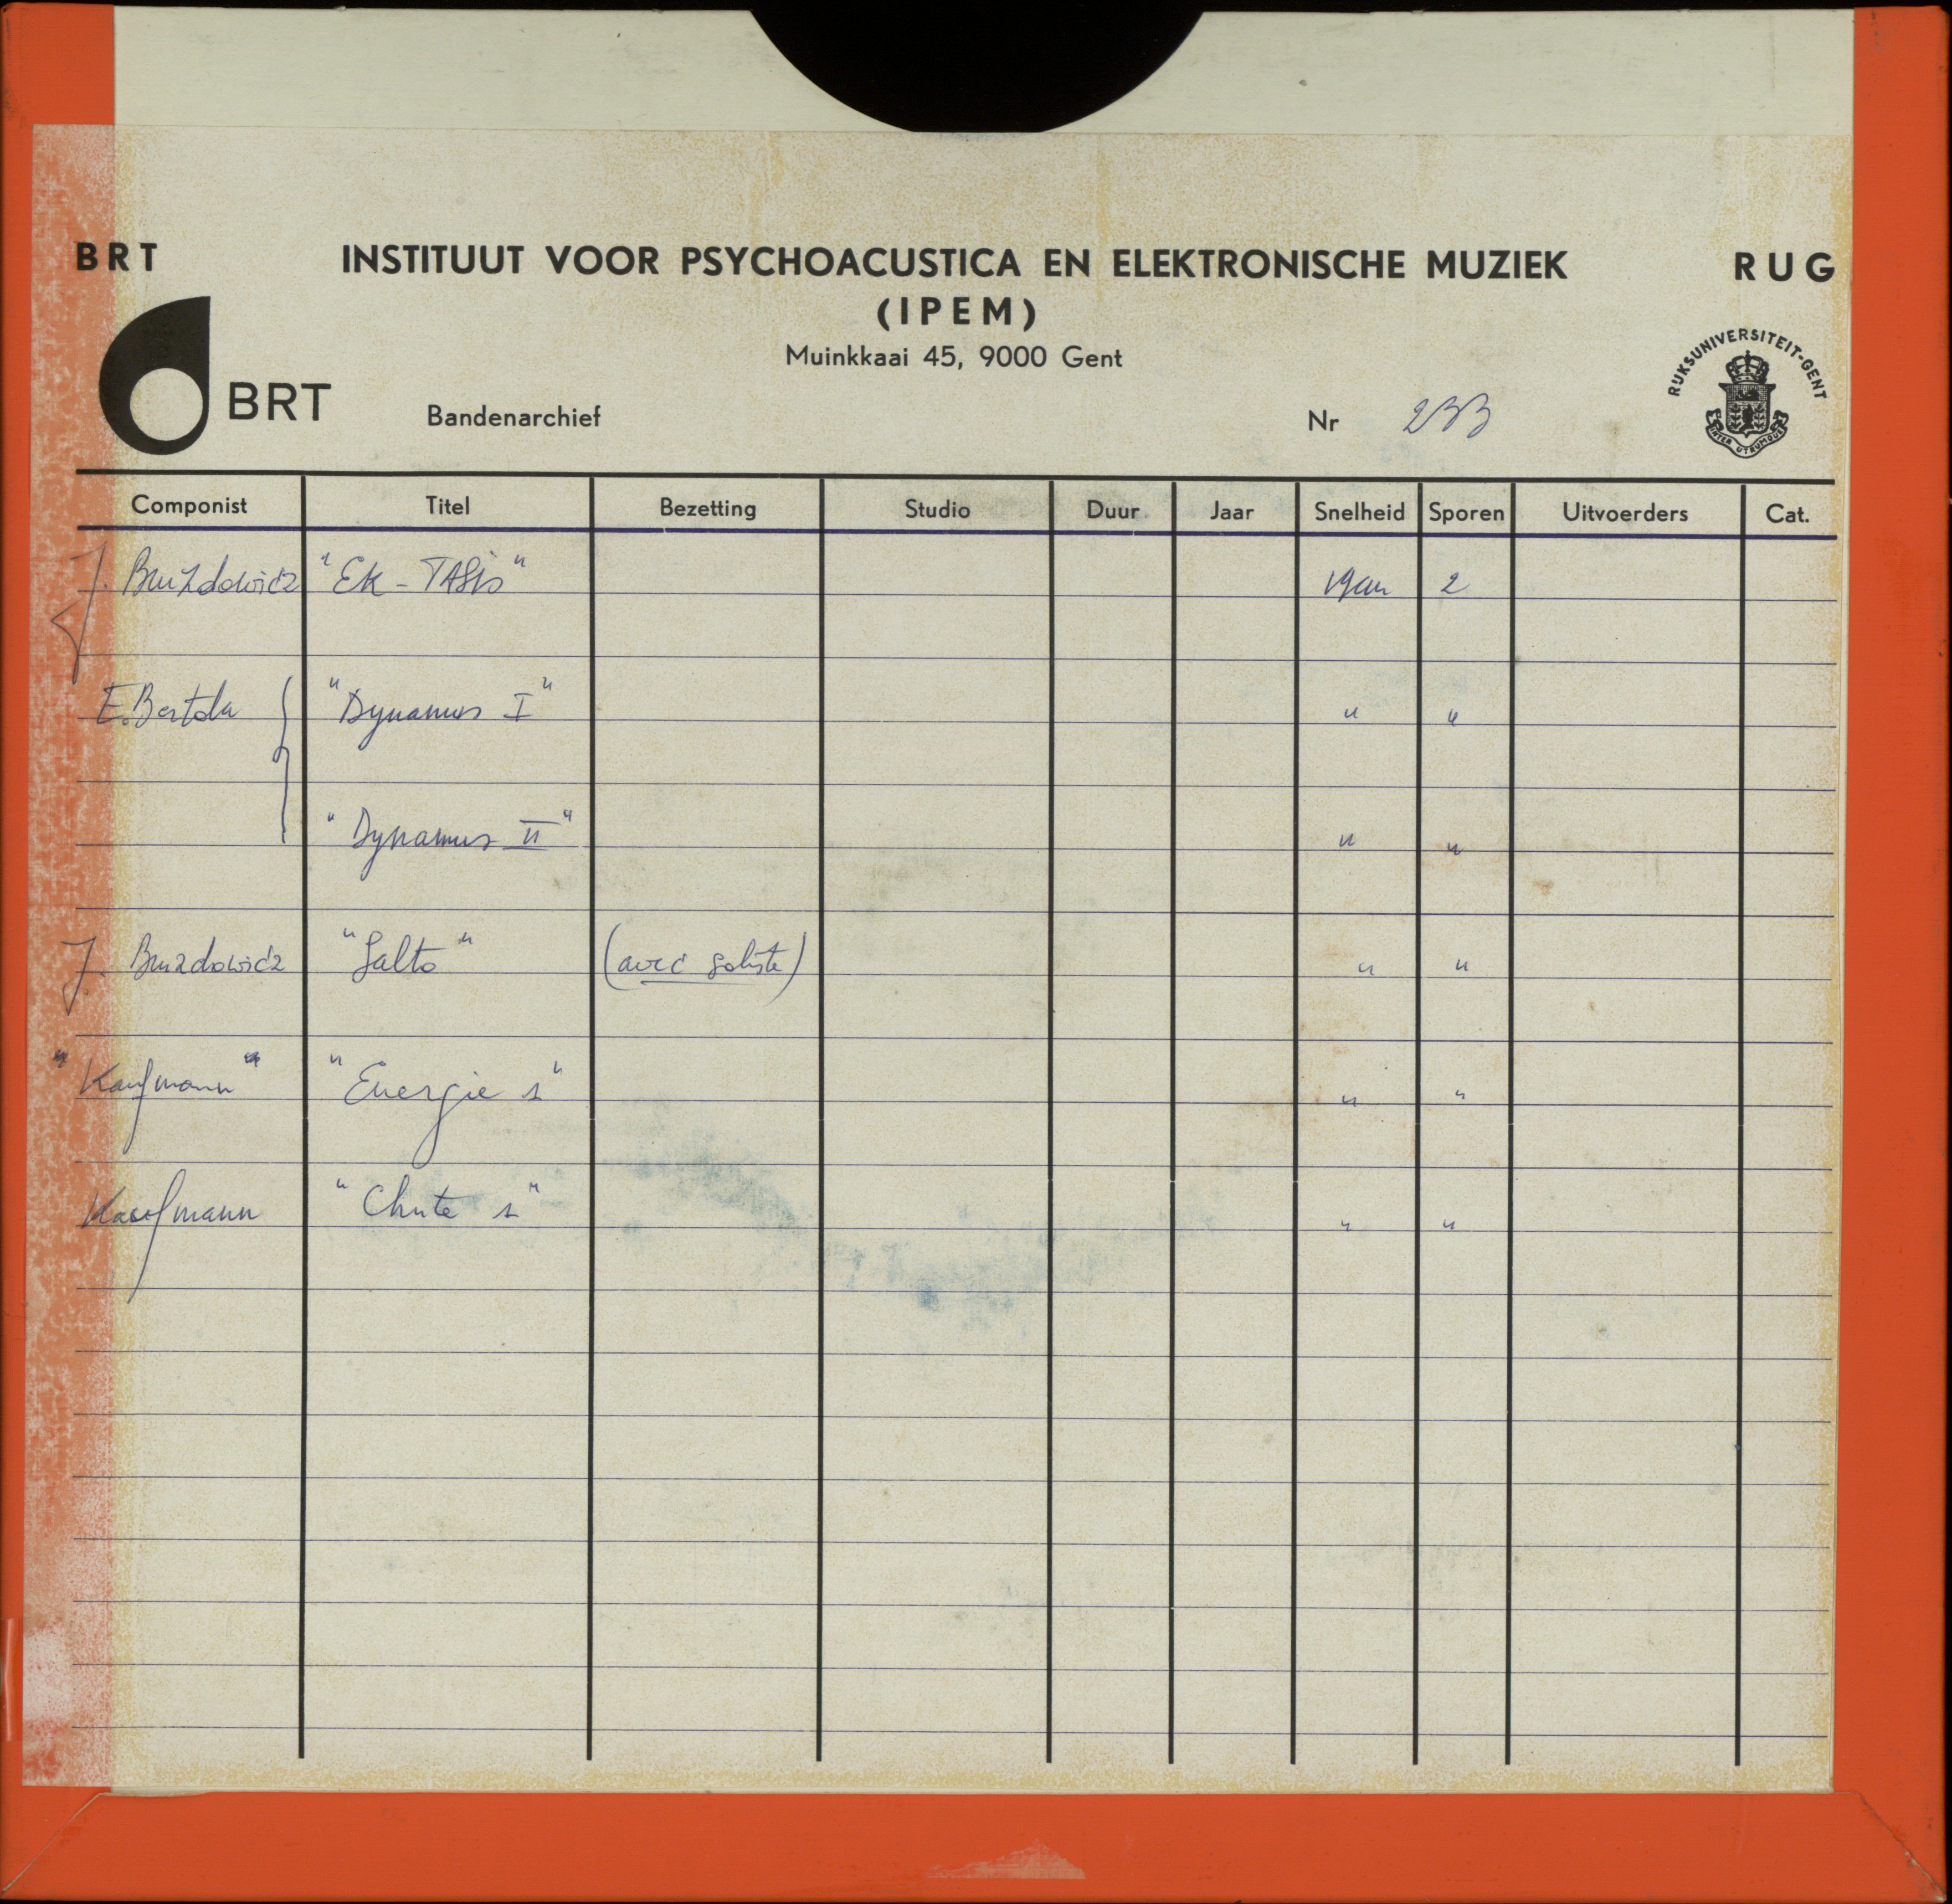 BRT INSTITUUT VOOR PSYCHOACUSTICA EN ELEKTRONISCHE MUZIEK RUG
(IPEM)
Muinkkaai 45, 9000 Gent
RIJKSUNIVERSITEIT-GENT
INTER UTRUMQUE
BRT Bandenarchief Nr 233
Componist Titel Bezetting Studio Duur Jaar Snelheid Sporen Uitvoerders Cat.
J. Bruzdowicz "Ek-TASis" 19cm 2
E. Bertola "Dynamus I" " "
"Dynamus II" " "
J. Bruzdowicz "Salto" (avec soliste) " "
"Kaufmann" "Energie 1" " "
Kaufmann "Chute 1" " "